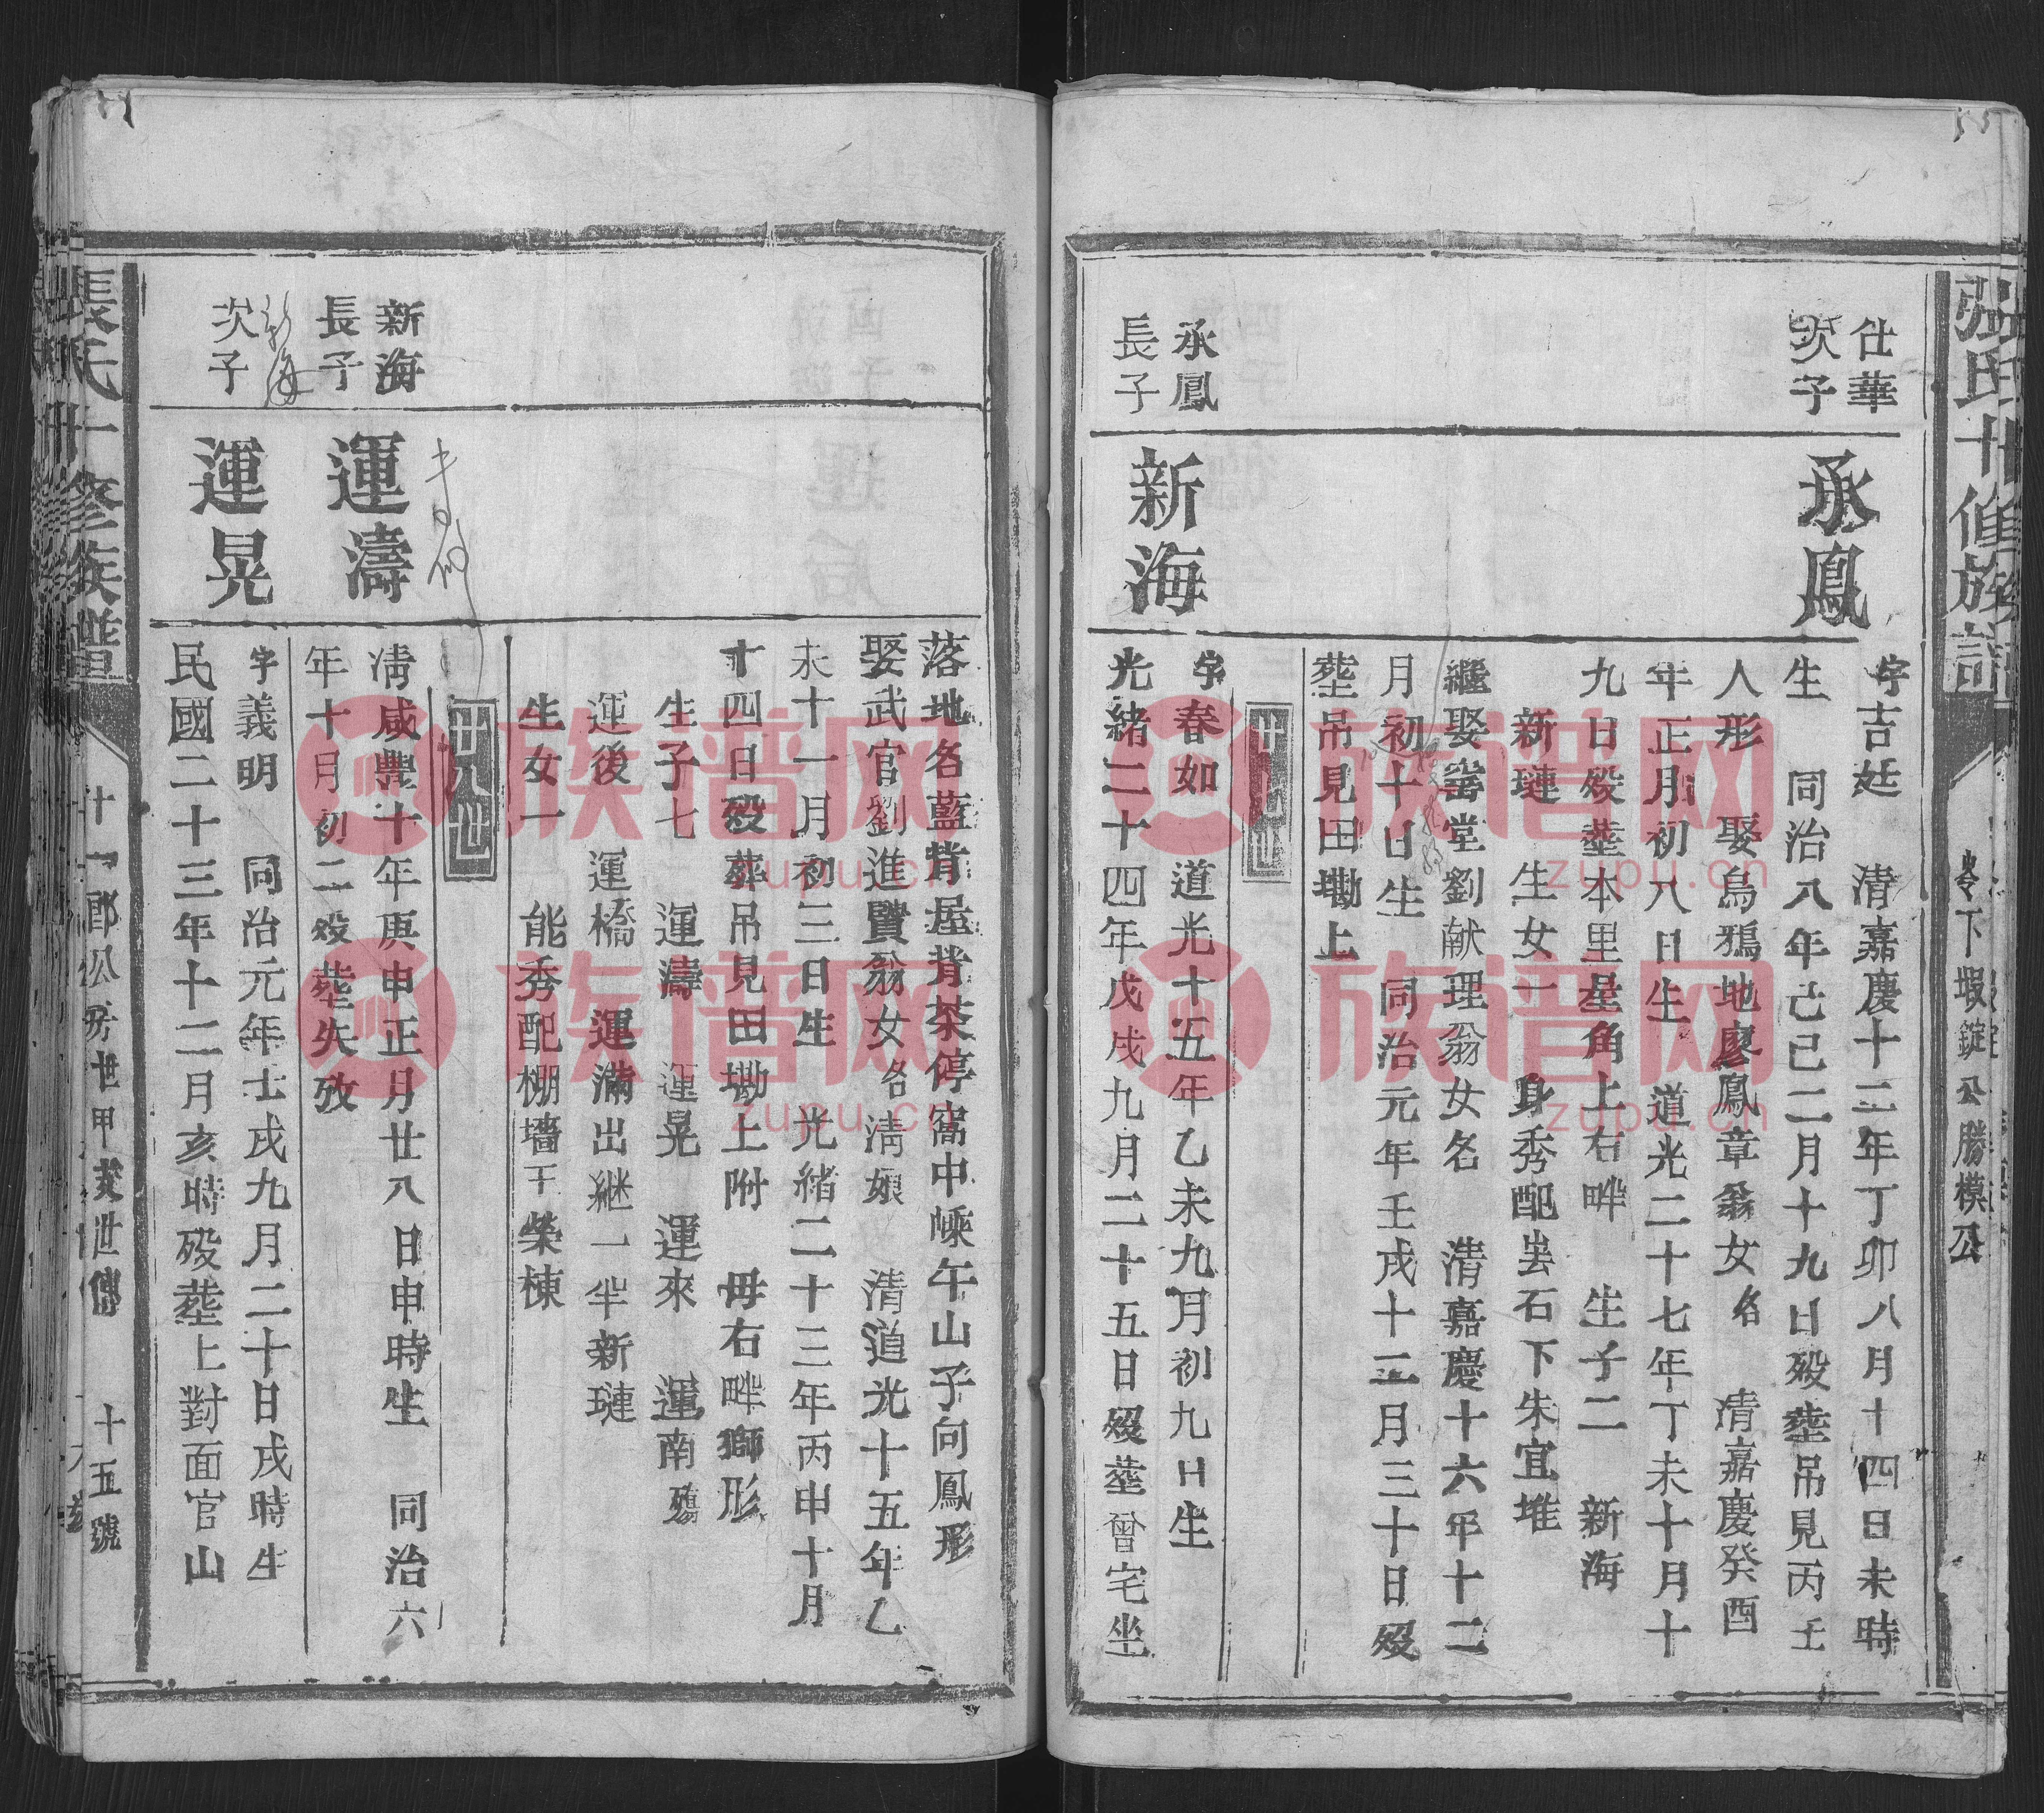 張氏十修族譜
嶺下蝦錠公勝模公
仕華
次子
承鳳
字吉廷　清嘉慶十二年丁卯八月十四日未時
生　同治八年己巳二月十九日歿塟吊見丙壬
人形　娶烏鴉地廖鳳章翁女名　清嘉慶癸酉
年正月初八日生　道光二十七年丁未十月十
九日歿塟本里星角上右畔　生子二　新海
新璉　生女一　身秀配㘵石下朱宜堆
繼娶𡶶堂劉献理翁女名　清嘉慶十六年十二
月初十日生　同治元年壬戌十二月三十日歿
塟吊見田墈上
廿七世
承鳳
長子
新海
字春如　道光十五年乙未九月初九日生
光緒二十四年戊戌九月二十五日歿塟曾宅坐
落地名藍背屋背茶停窩中嵊午山子向鳳形
娶武官劉進賢翁女名清娘　清道光十五年乙
未十一月初三日生　光緒二十三年丙申十月
十四日歿葬吊見田墈上附　母右畔獅形
生子七　運濤　運晃　運來　運南殤
運後　運橋　運滿出継一半新璉
生女一　能秀配棚墻干榮棟
廿八世
新海
長子
運濤
清咸豐十年庚申正月廿八日申時生　同治六
年十月初二歿塟失攷
新海
次子
運晃
字義明　同治元年壬戌九月二十日戌時生
民國二十三年十二月亥時歿塟上對面官山
張氏十修族譜
十一郎公房世甲　世傳　十五號
族谱网
zupu.cn
族谱网
zupu.cn
族谱网
zupu.cn
族谱网
zupu.cn